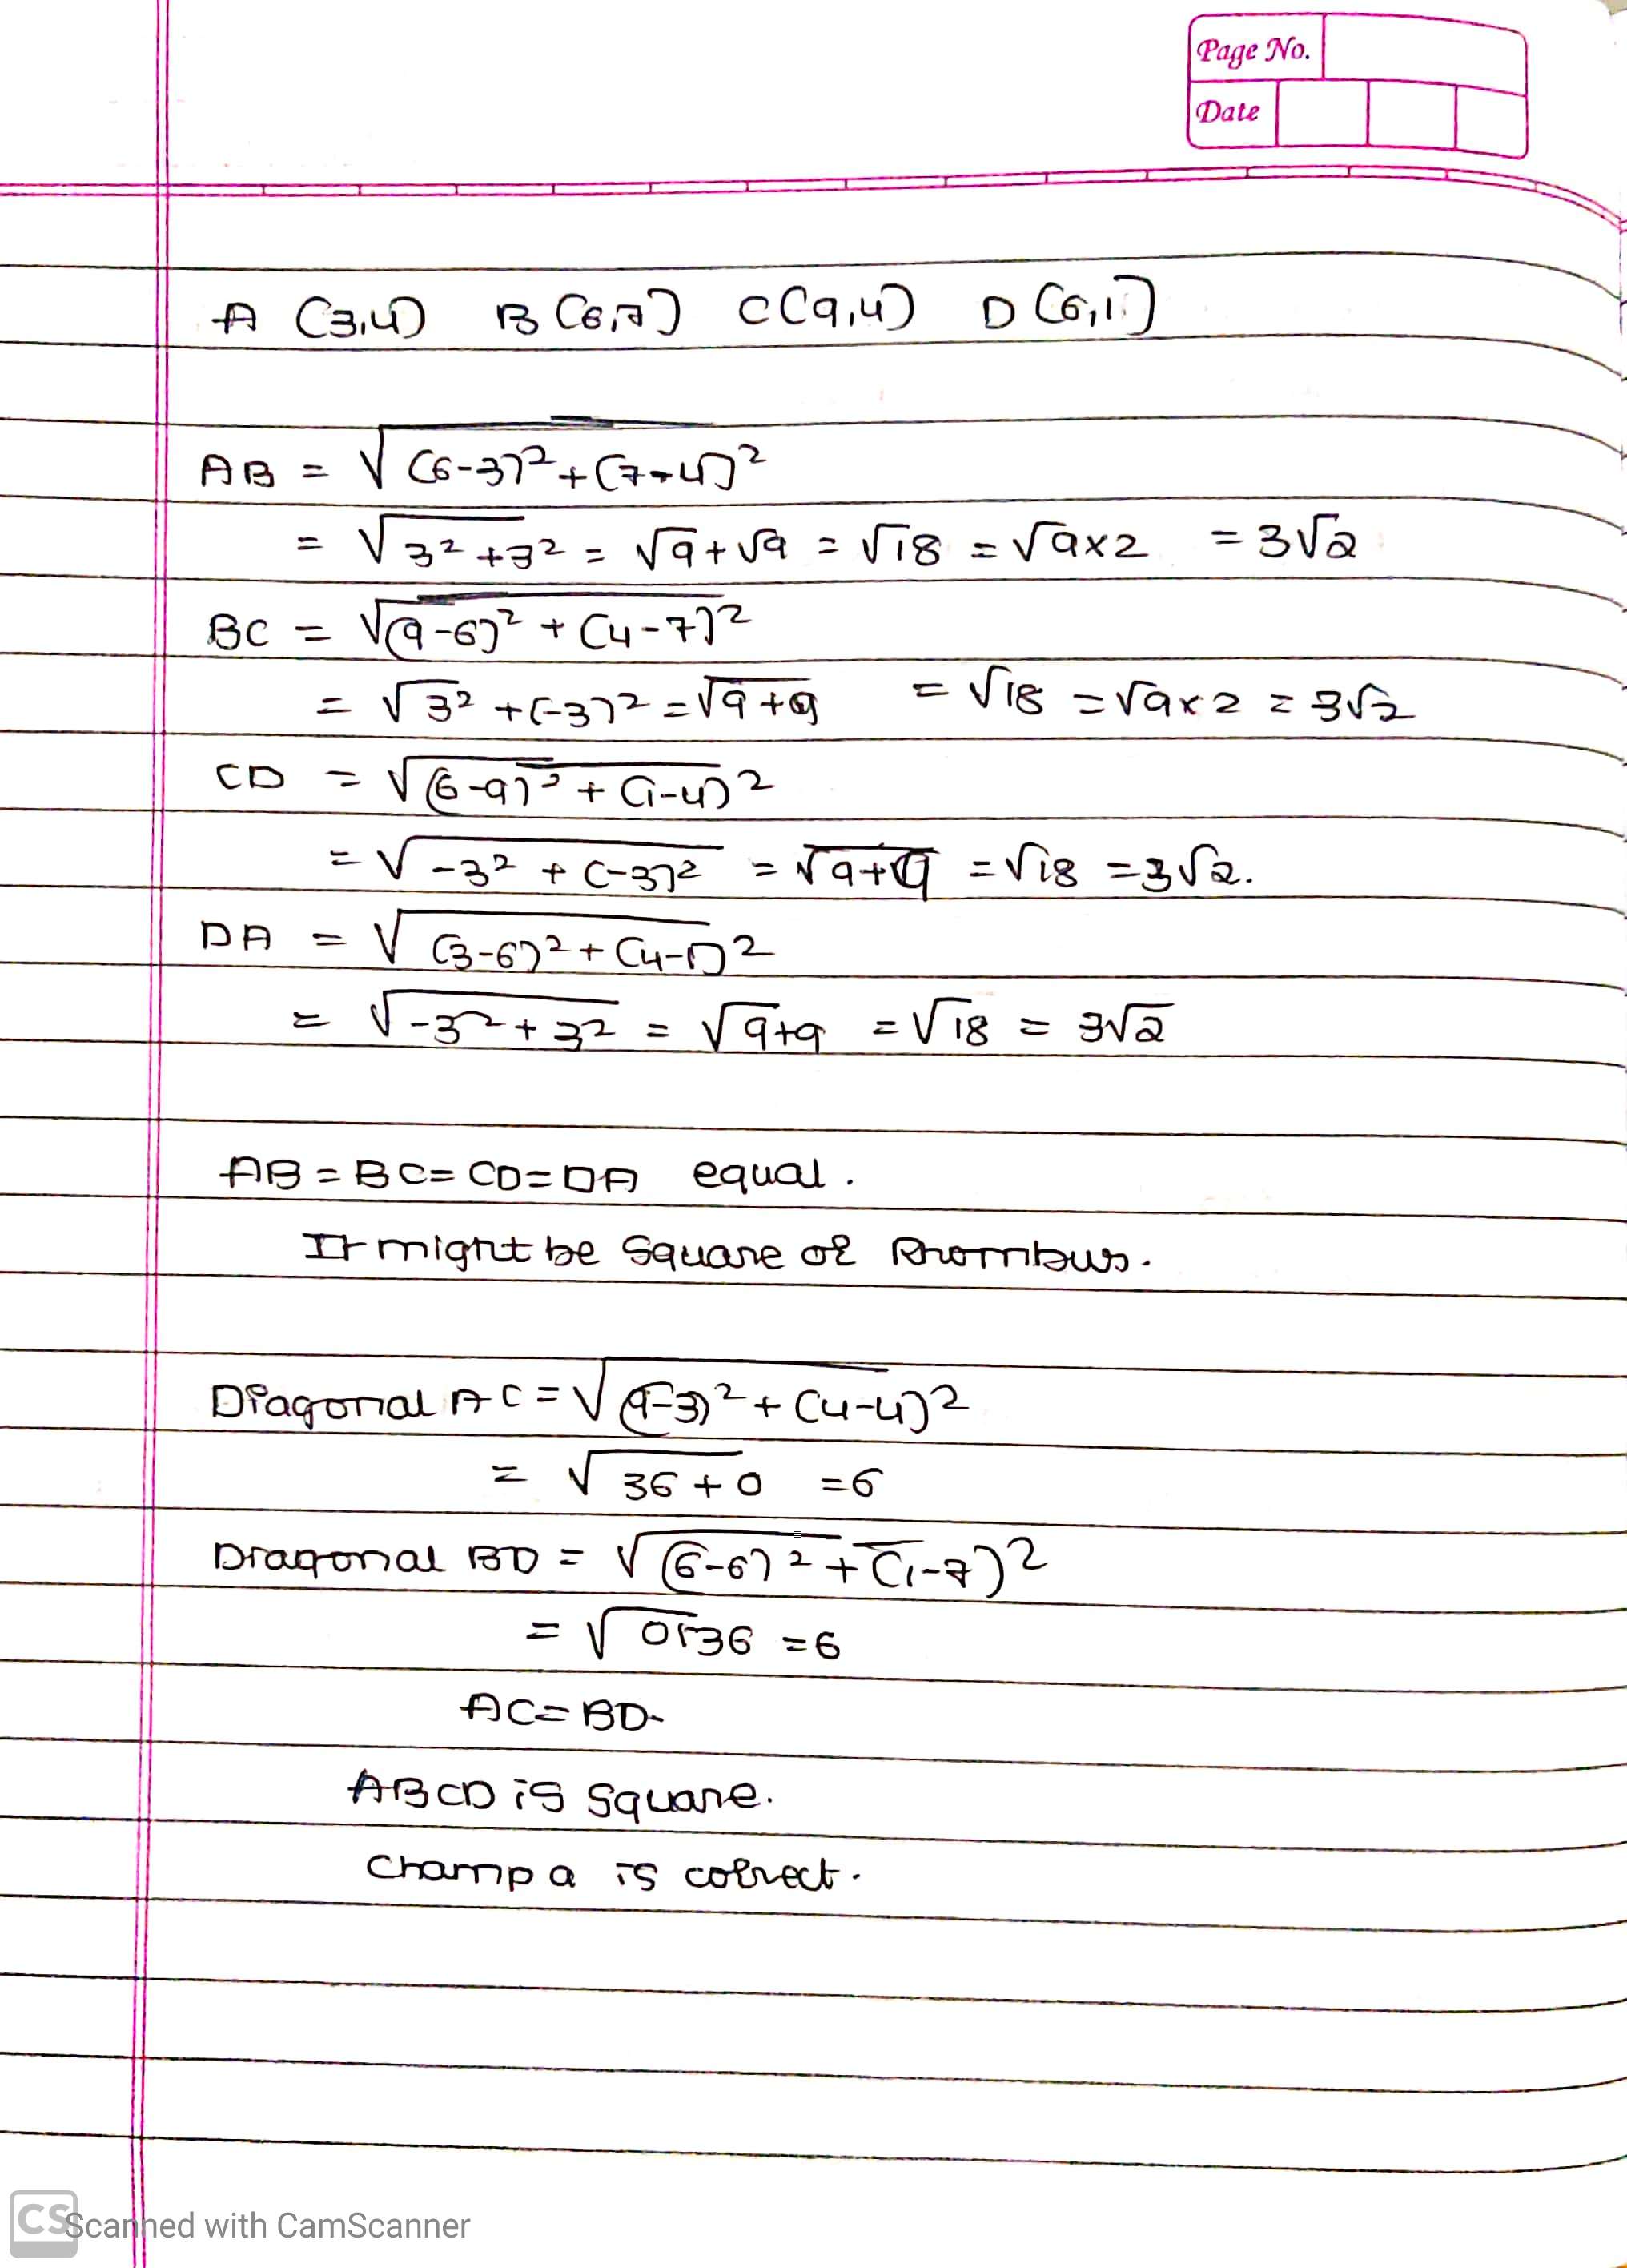 Page No.
Date
A (3,4) B (6,7) C (9,4) D (6,1)
AB = √(6-3)² + (7-4)²
= √3² + 3² = √9 + √9 = √18 = √9×2 = 3√2
BC = √(9-6)² + (4-7)²
= √3² + (-3)² = √9+9 = √18 = √9×2 = 3√2
CD = √(6-9)² + (1-4)²
= √-3² + (-3)² = √9+9 = √18 = 3√2.
DA = √(3-6)² + (4-1)²
= √-3² + 3² = √9+9 = √18 = 3√2
AB = BC = CD = DA equal.
It might be Square or Rhombus.
Diagonal AC = √(9-3)² + (4-4)²
= √36 + 0 = 6
Diagonal BD = √(6-6)² + (1-7)²
= √0+36 = 6
AC = BD.
ABCD is Square.
Champa is correct.
CS Scanned with CamScanner